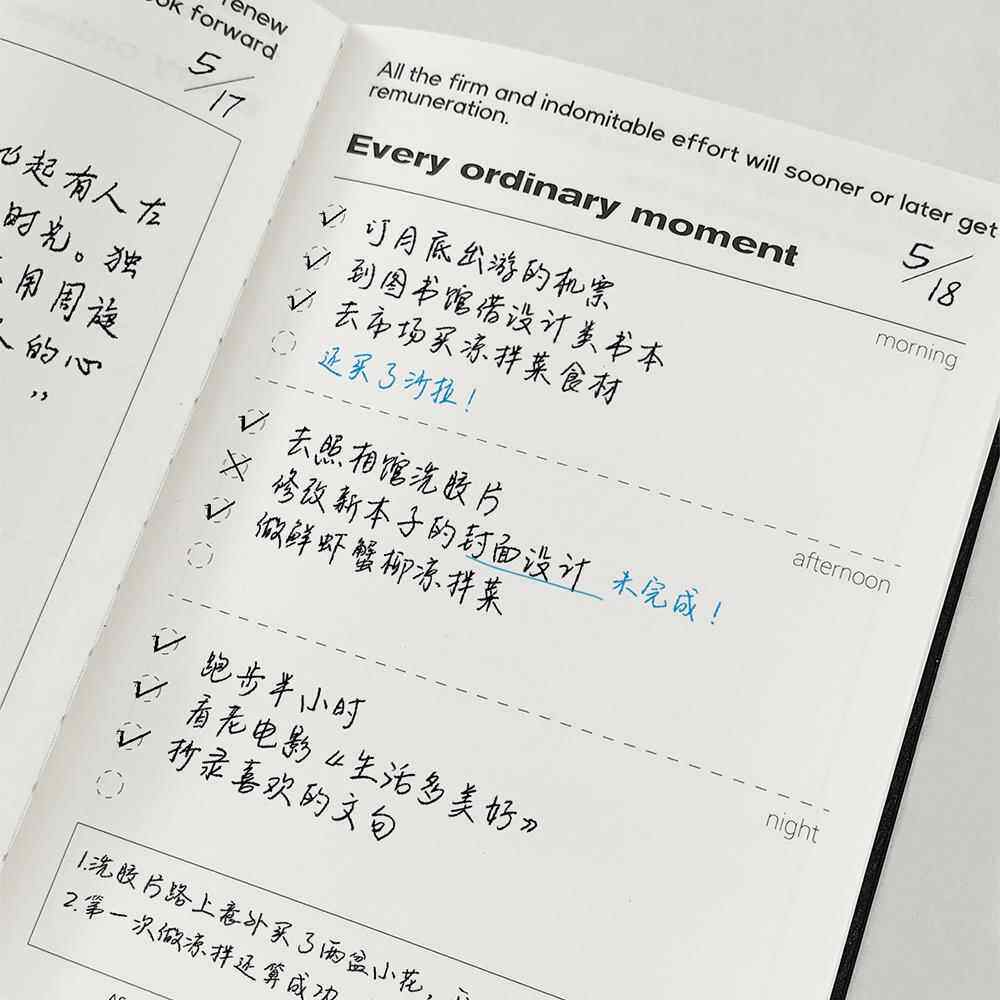 renew
ok forward
5/17
起有人左
时光。独
用周旋
人的心
”
All the firm and indomitable effort will sooner or later get
remuneration.
Every ordinary moment
5/18
morning
订月底出游的机票
到图书馆借设计类书本
去市场买凉拌菜食材
还买了沙拉！
afternoon
去照相馆洗胶片
修改新本子的封面设计 未完成！
做鲜虾蟹柳凉拌菜
night
跑步半小时
看老电影《生活多美好》
抄录喜欢的文句
1.洗胶片路上意外买了两盆小花，
2.第一次做凉拌还算成功